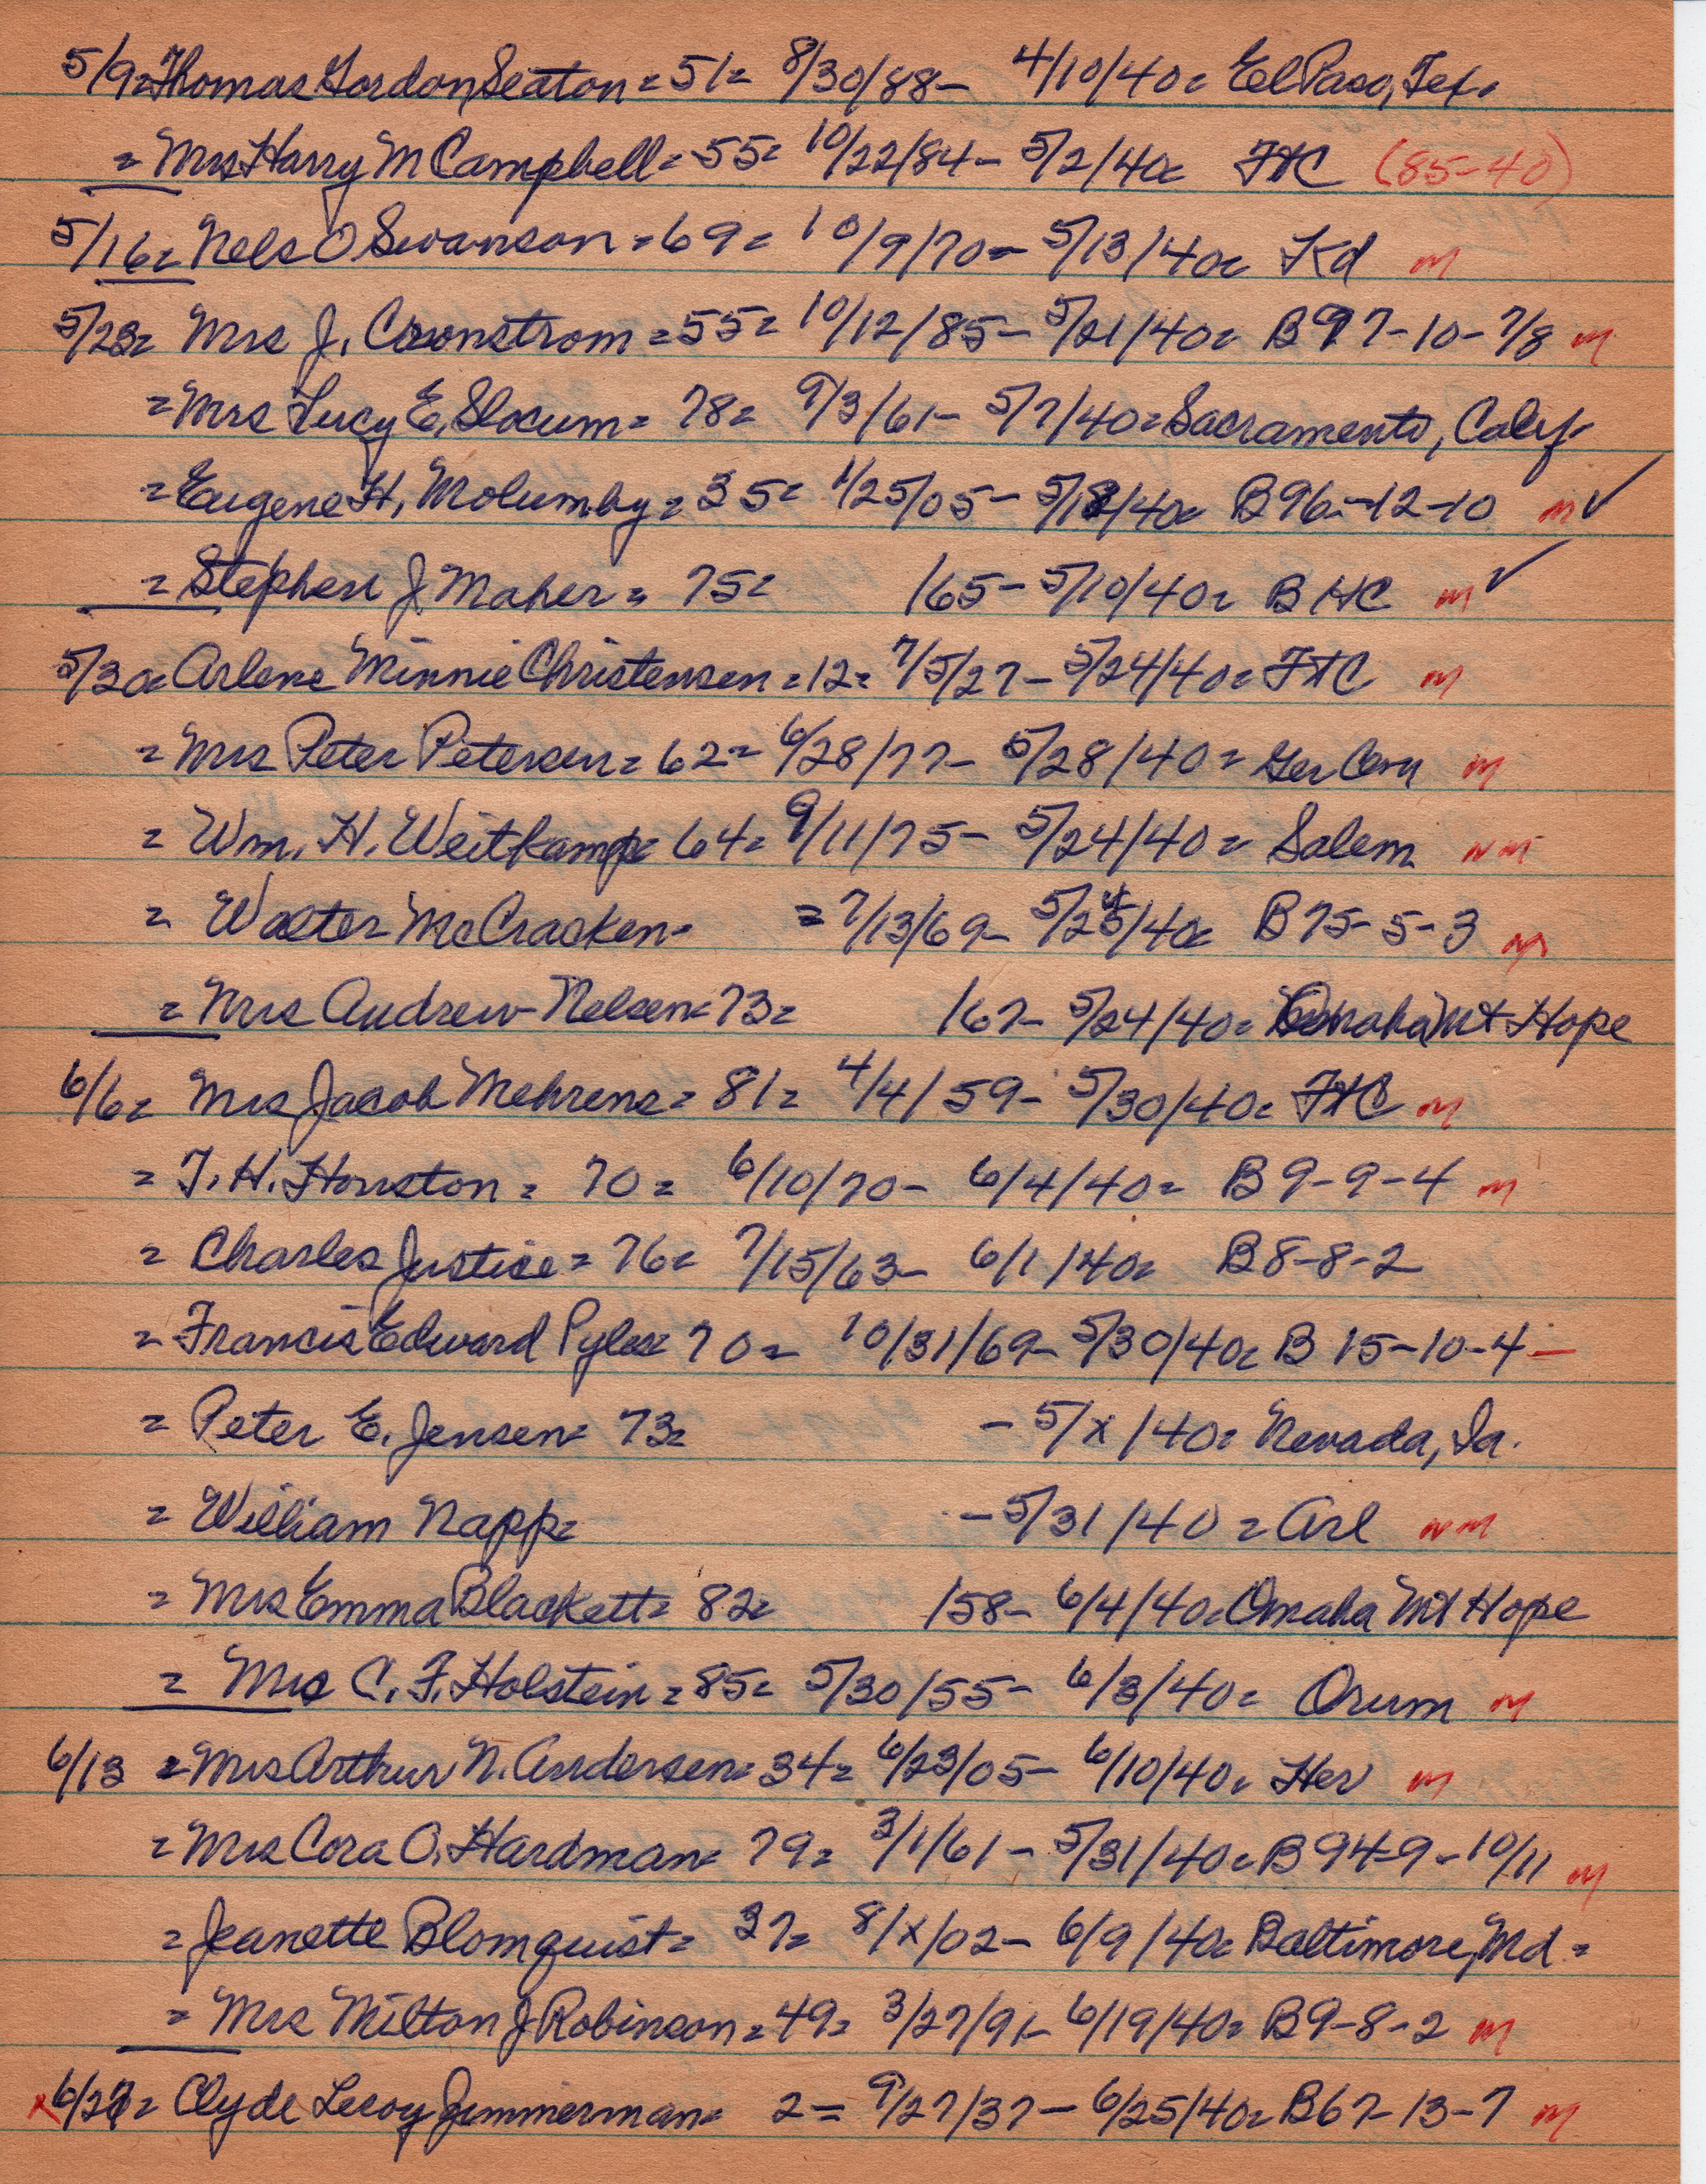 5/9= Thomas Gordon Seaton = 51= 8/30/88- 4/10/40= El Paso, Tex.
= Mrs Harry M Campbell = 55= 10/22/84- 5/2/40= FtC (85-40)
5/16= Nels O Swanson = 69= 10/9/70- 5/13/40= Kd m
5/23= Mrs J. Cronstrom = 55= 10/12/85- 5/21/40= B97-10-7/8 m
= Mrs Lucy E. Slocum = 78= 9/3/61- 5/7/40= Sacramento, Calif.
= Eugene H. Molumby = 35= 1/25/05- 5/18/40= B96-12-10 m ✓
= Stephen J Maher = 75= /65- 5/10/40= B HC m ✓
5/30= Arlene Minnie Christensen = 12= 7/5/27- 5/24/40= FTC m
= Mrs Peter Petersen = 62= 6/28/77- 5/28/40= Ger Cem m
= Wm. H. Weitkamp = 64= 9/11/75- 5/24/40= Salem nm
= Walter McCracken- = 7/13/69- 5/25/40= B75-5-3 m
= Mrs Andrew Nelsen = 73= /67- 5/24/40= Omaha Mt Hope
6/6= Mrs Jacob Mehrens = 81= 4/4/59- 5/30/40= FtC m
= T. H. Houston = 70= 6/10/70- 6/4/40= B9-9-4 m
= Charles Justice = 76= 7/15/63- 6/1/40= B8-8-2
= Francis Edward Pyle = 70= 10/31/69- 5/30/40= B 15-10-4 -
= Peter E. Jensen = 73= - 5/x/40= Nevada, Ia.
= William Napp= - 5/31/40= Arl nm
= Mrs Emma Blackett = 82= /58- 6/4/40= Omaha Mt Hope
= Mrs C. F. Holstein = 85= 5/30/55- 6/3/40= Orum m
6/13 = Mrs Arthur N. Andersen = 34= 6/23/05- 6/10/40= Her m
= Mrs Cora O. Hardman = 79= 3/1/61- 5/31/40= B94-9-10/11 m
= Jeanette Blomquist = 37= 8/x/02- 6/9/40= Baltimore, Md =
= Mrs Milton J Robinson = 49= 3/27/91- 6/19/40= B9-8-2 m
x 6/27= Clyde Leroy Zimmerman = 2= 9/27/37- 6/25/40= B67-13-7 m